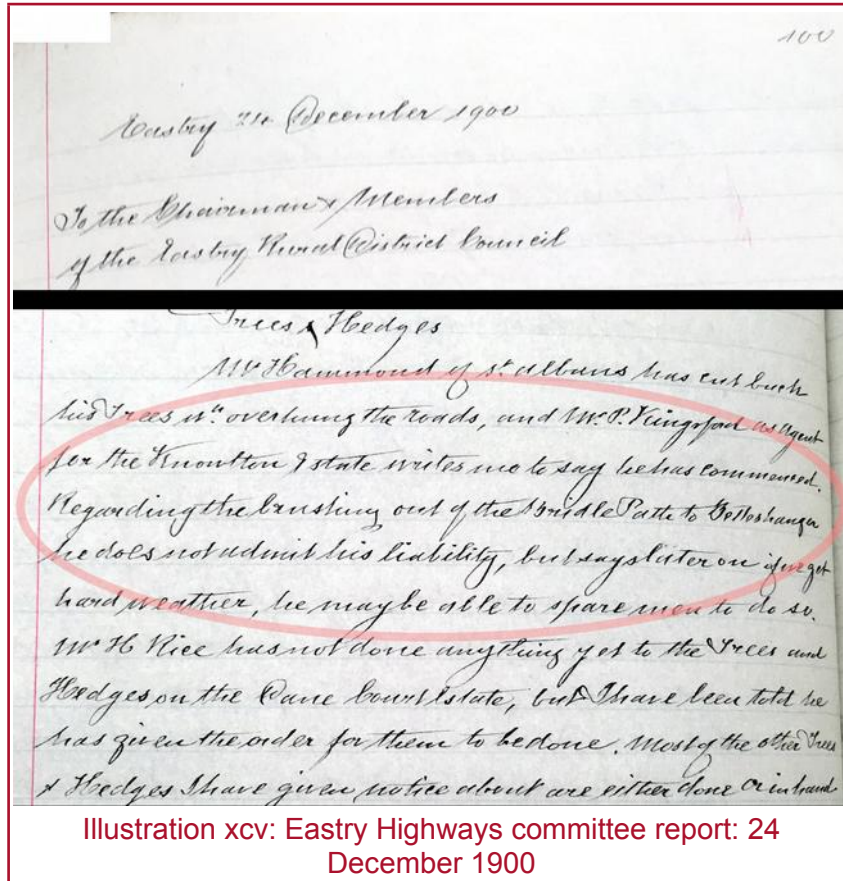 100
Eastry 24 December 1900
To the Chairman & Members
of the Eastry Rural District Council
Trees & Hedges
Mr Hammond of St. Albans has cut back
his Trees wh. overhung the roads, and Mr. P. Kingsford as Agent
for the Knowlton Estate writes me to say he has commenced.
Regarding the brushing out of the Bridle Path to Betteshanger
he does not admit his liability, but says later on if we get
hard weather, he may be able to spare men to do so.
Mr H Rice has not done anything yet to the Trees and
Hedges on the Dane Court Estate, but I have been told he
has given the order for them to be done. Most of the other Trees
& Hedges I have given notice about are either done or in hand
Illustration xcv: Eastry Highways committee report: 24
December 1900